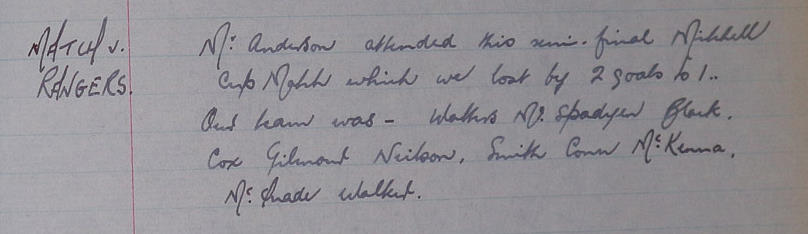 MATCH v. Mr. Anderson attended this semi-final Mitchell
RANGERS. Cup Match which we lost by 2 goals to 1..
Our team was - Walters Mc. Spadyen Black.
Cox Gilmour Neilson, Smith Conn McKenna,
Mc. Quade Walker.